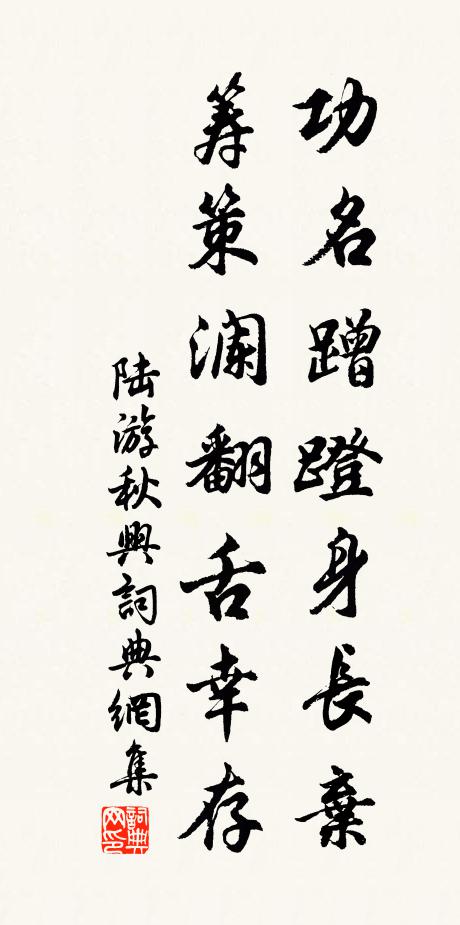 功名蹭蹬身長棄
籌策瀾翻舌幸存
陆游秋興詞典網集
詞典網印